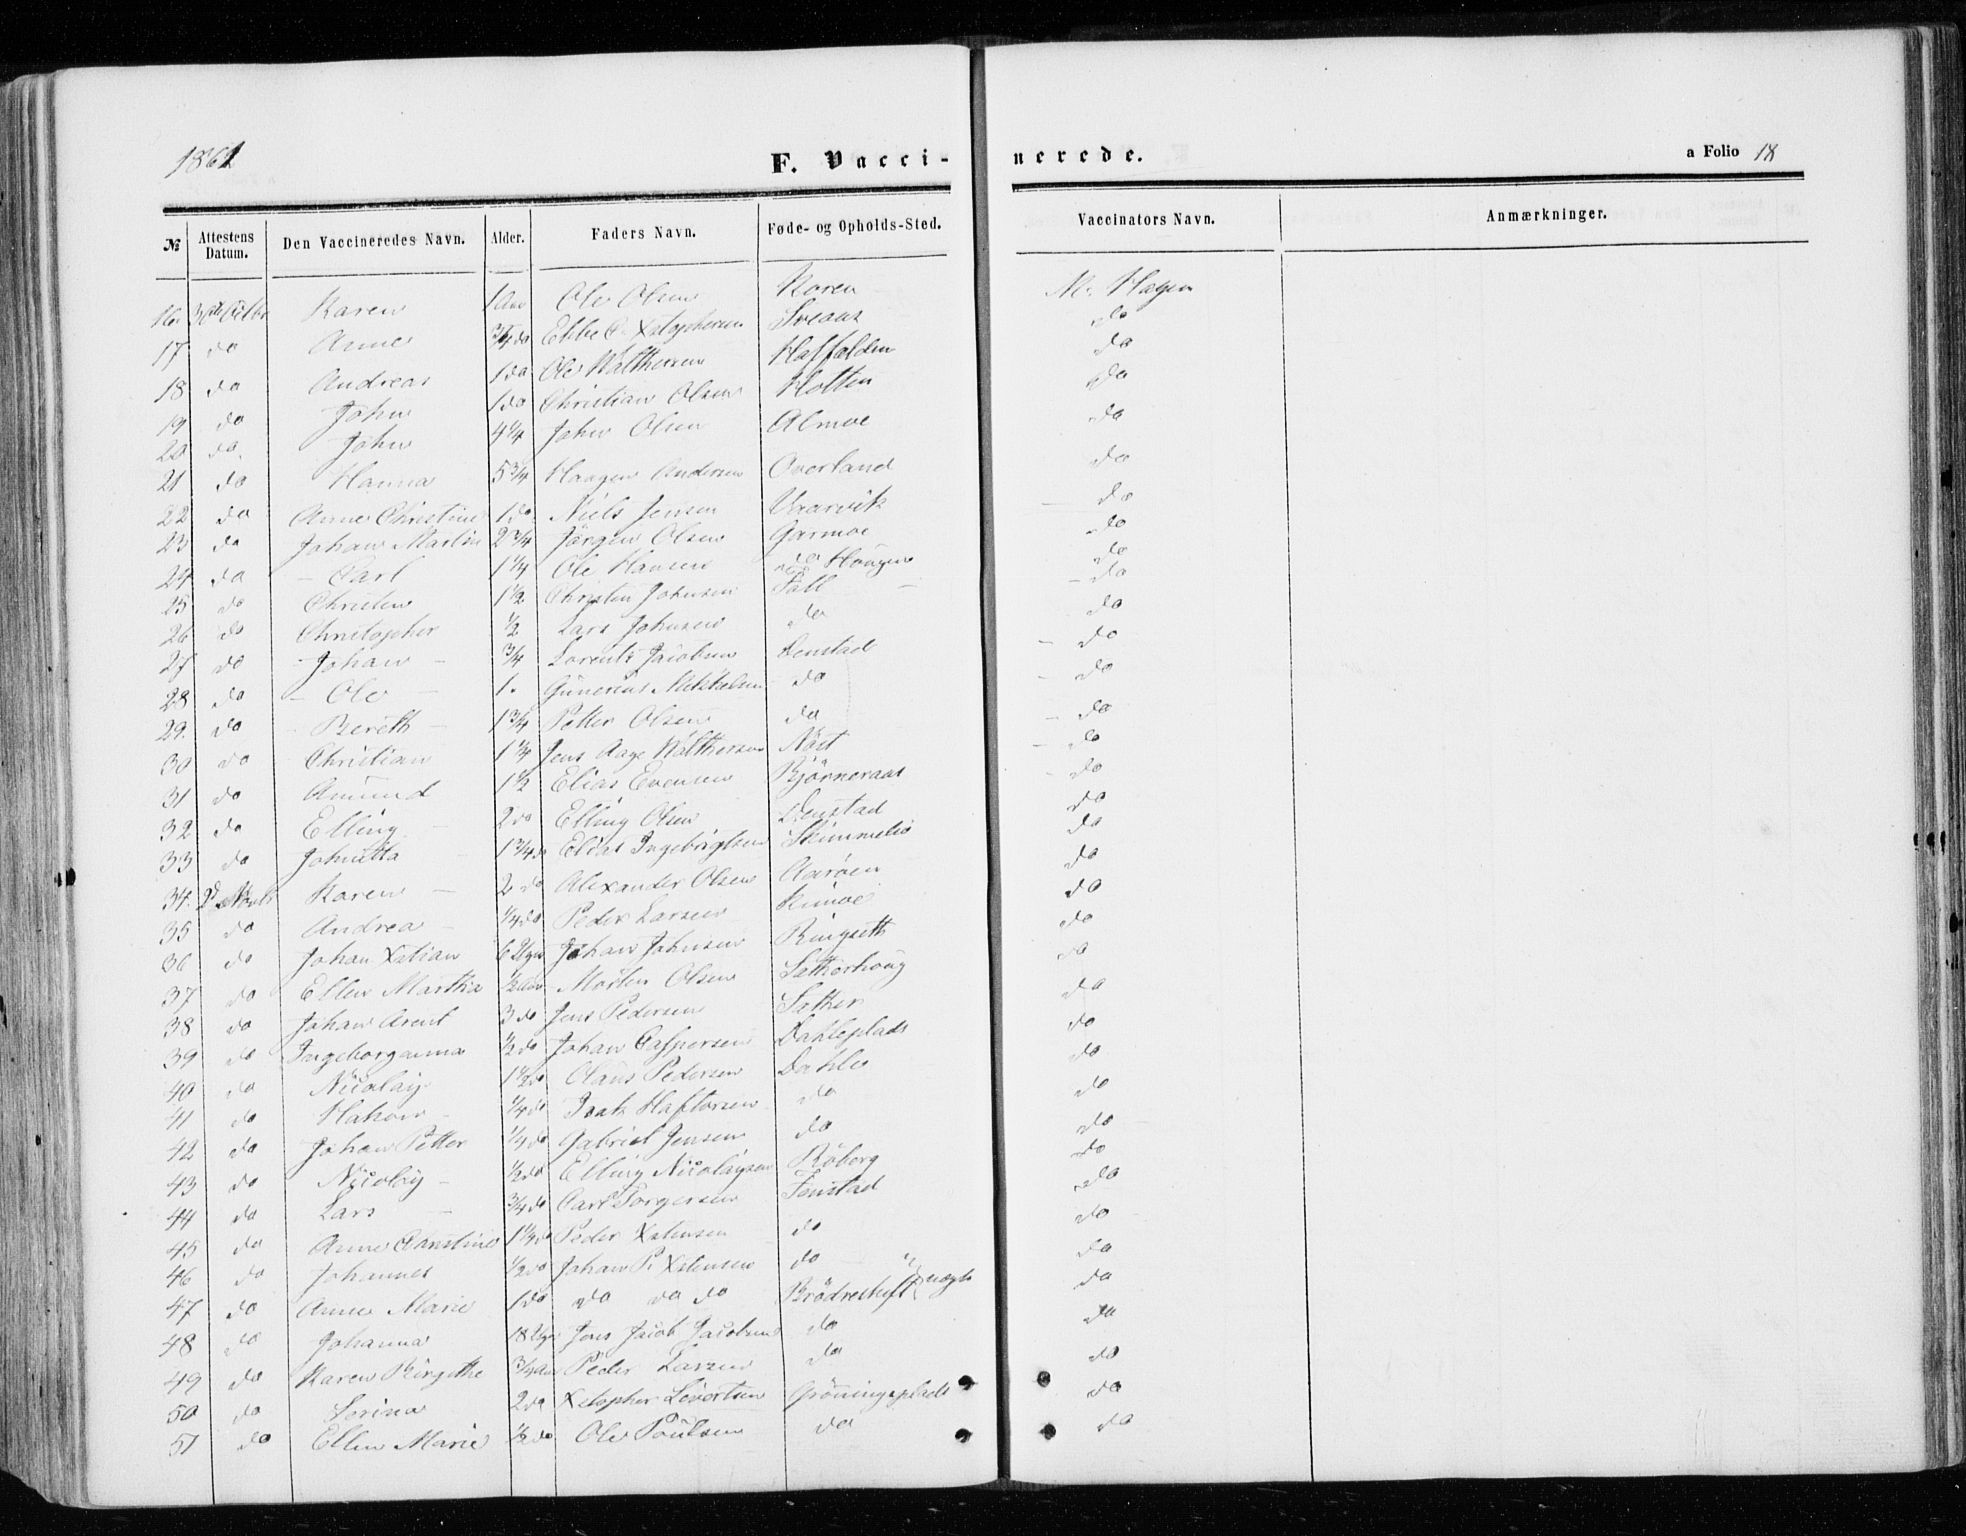 1861 F. Vacci- nerede. a Folio 18
№ Attestens Datum. Den Vaccineredes Navn. Alder. Faders Navn. Føde- og Opholds-Sted. Vaccinators Navn. Anmærkninger.
16. Karen 1 Aar Ole Olsen Koren M. Hagen
17 do Anne 3/4 do Ebbe Xstophersen do
18 do Andreas 1 do Ole Walthersen Haffelden do
19 do John 1 do Christian Olsen Holten do
20 do. John 4 1/4 John Olsen Almoe do
21 do Hanna 5 3/4 Haagen Andersen Overland do
22 do Anne Christine 1 do Niels Jensen Vaarvik do
23 do Johan Martin 2 3/4 Jørgen Olsen Garmoe do
24 do - Carl 1 1/4 Ole Hansen do Haugen do
25 do Christen 1 1/2 Christen Johnsen Fall - do
26 do Christopher 1/2 Lars Johnsen do do
27 do - Johan - 3/4 Lorents Jacobsen Denstad - do
28 do - Ole - 1. Gunerius Mikkelsen do - do
29. do Bereth - 1 3/4 Petter Olsen do - do
30 do Christian 1 1/4 Jens Aage Walthersen Nøst - do
31 do Amund 1 1/2 Elias Evensen Bjørneraas do
32 do Elling - 2 do Elling Olsen Denstad do
33 do Johnetta - 1 3/4 do Elias Ingebrigtsen Skimmelie do
34. Karen - 2 do Alexander Olsen Aarøen do
35 do Andrea - 1/4 do Peder Larsen do
36 do Johan Xstian 6 Uger Johan Johnsen Ringseth do
37 do Ellen Martha 1/2 Aar Morten Olsen Sætherhoug do
38 do Johan Arent 3 do Jens Pedersen Sæther do
39 do Ingeborganna 1/2 do Johan Caspersen Dahleplads do
40 do Nicolay 1 1/2 do Olaus Pedersen Dahle do
41 do Hakon - 1/4 do Isak Haftorsen do do
42 do Johan Petter 1/4 do Gabriel Jensen do do
43 do Nicolay - 1/2 do Elling Nicolaysen Røberg do
44 do Lars - 3/4 do Carl Torgersen Fenstad do
45 do Anne Christine 1 1/4 do Peder Xstensen do do
46 do Johannes 1/2 do Johan P. Xstensen do do
47 do Anne Marie 1 do do do do Brødreskift do
48 do Johanna 18 Uger Jens Jacob Jacobsen do do
49 do Karen Birgithe 3/4 Aar Peder Larsen do do
50 do Serina 2 do Xstopher Sivertsen Grøningsplads do
51 do Ellen Marie 1/2 do Ole Poulsen do do